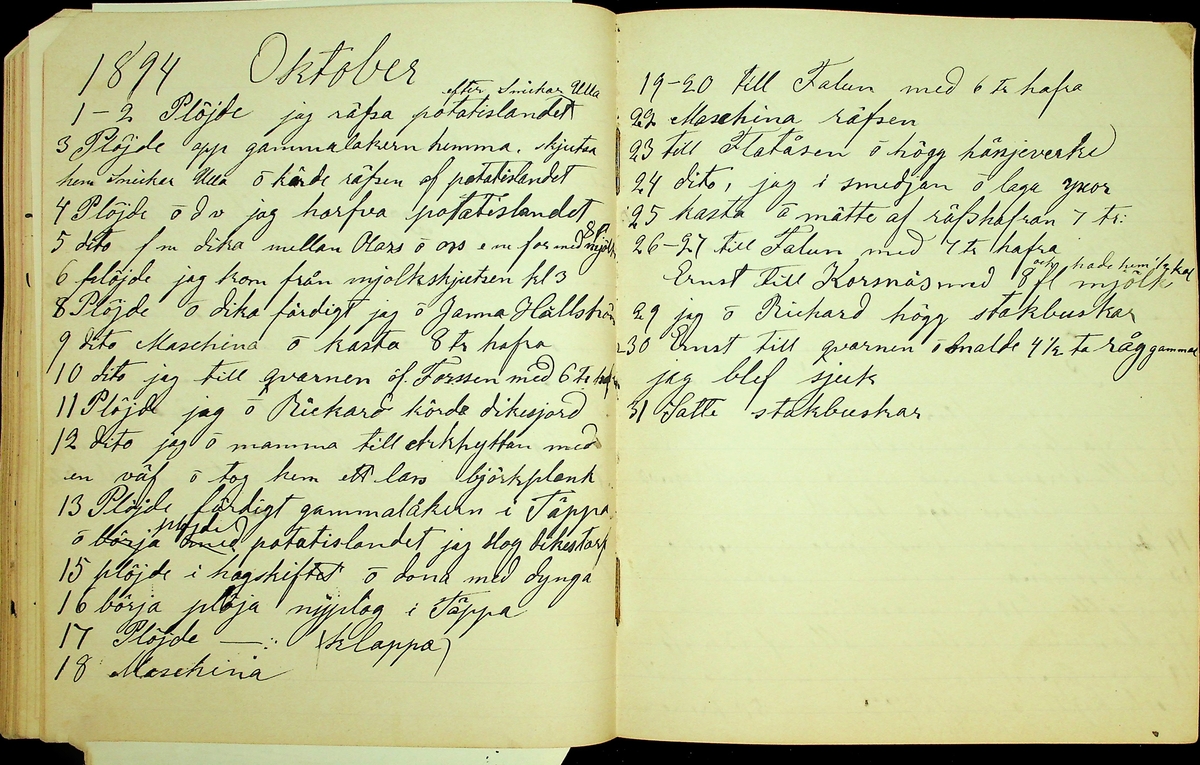 1894 Oktober
efter Snickar Ulla
1-2 Plöjde jag räfsa potatislandet
3 Plöjde opp gammalåkern hemma. skjutsa
hem Snickar Ulla ō körde räfsen af potatislandet
4 Plöjde ō d v jag harfva potatislandet
5 dito f m dika mellan Olars ō oss e m for med 8 fl mjölk
6 plöjde jag kom från mjölkskjutsen kl 3
8 Plöjde ō dika färdigt jag ō Janna Hällström
9 dito Maschina ō kasta 8 tr hafra
10 dito jag till qvarnen öf. Forssen med 6 tr
11 Plöjde jag ō Rickard körde dikesjord
12 dito jag ō mamma till Arkhyttan med
en väf ō tog hem ett lass björkplank
13 Plöjde färdigt gammalåkern i Täppa
plöjde
ō börja med potatislandet jag slog dikestorf
15 plöjde i hagskiftet ō dona med dynga
16 börja plöja nyplog i Täppa
17 Plöjde —:: (Klappa)
18 Maschina
19-20 till Falun med 6 tr hafra
22 Maschina räfsen
23 till Flatåsen ō högg hässjeverke
24 dito, jag i smedjan ō laga yxor
25 kasta ō mätte af räfshafran 7 tr:
26-27 till Falun med 7 tr hafra
och hade hem 1/2 kol
Ernst till Korsnäs med 8 fl mjölk
29 jag ō Rickard högg stakbuskar
30 Ernst till qvarnen ō malde 4 1/2 ta råg gammal
jag blef sjuk
31 Satte stakbuskar